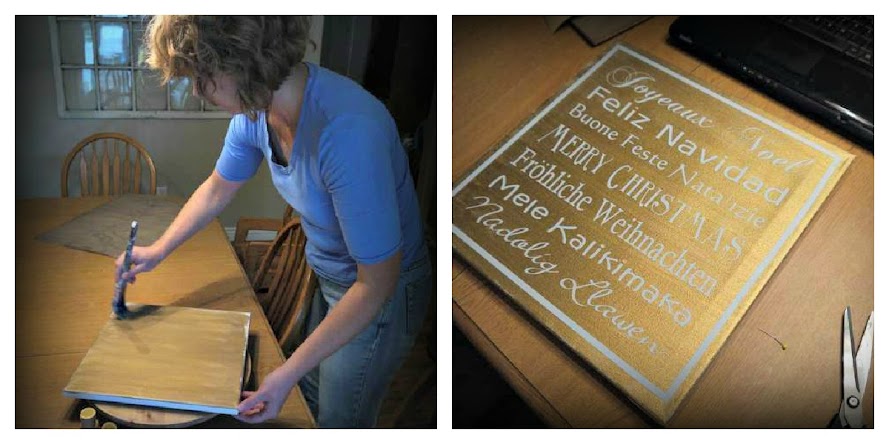 Joyeaux Noel
Feliz Navidad
Buone Feste Natalizie
MERRY CHRISTMAS
Fröhliche Weihnachten
Mele Kalikimaka
Nadolig Llawen